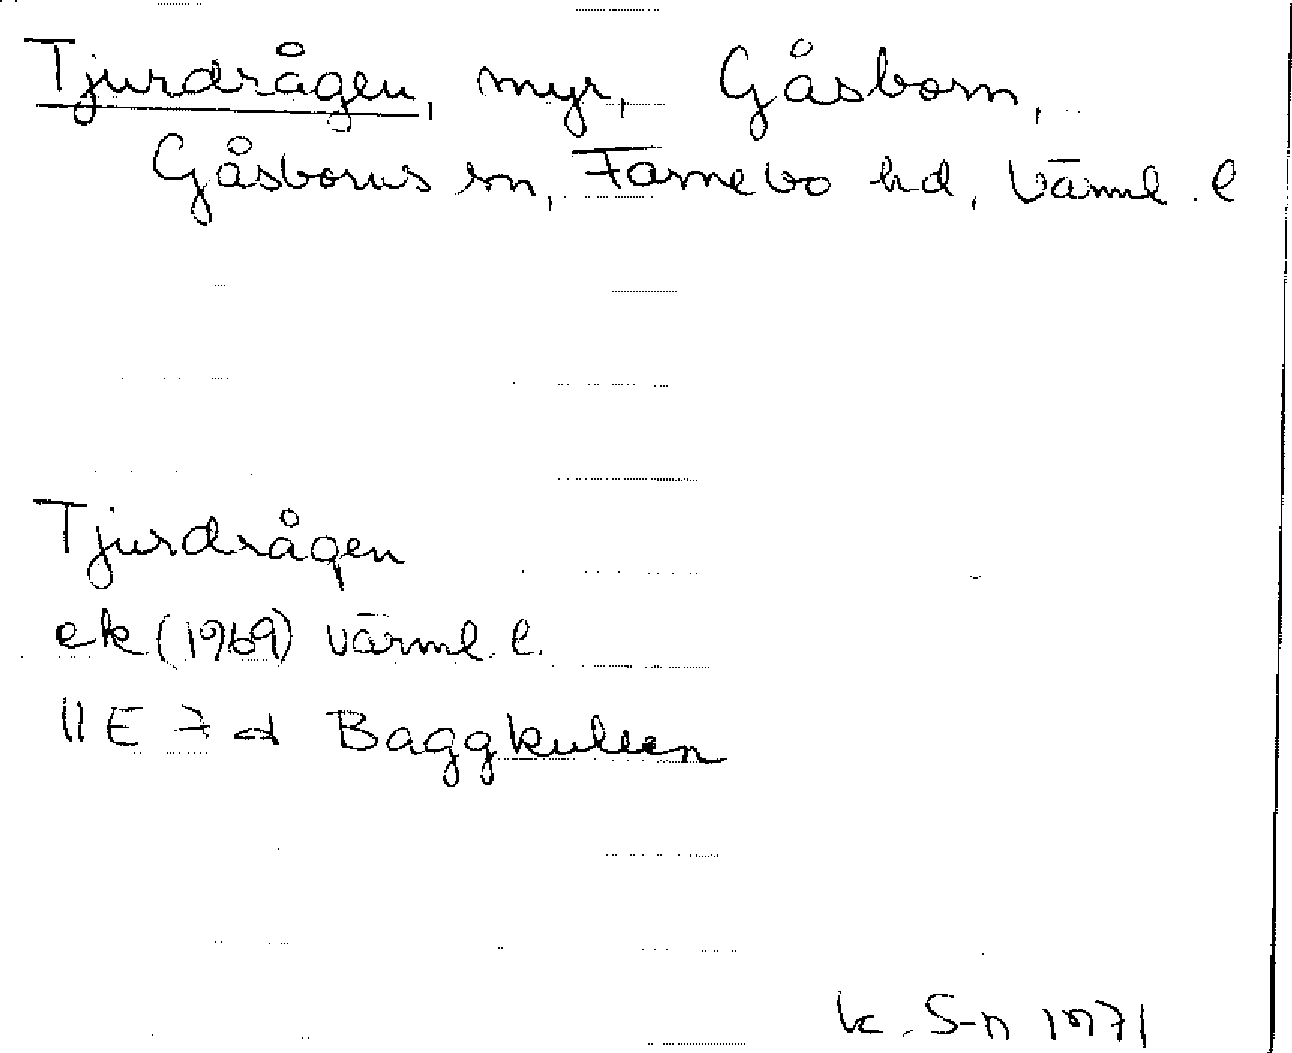 Tjurdrågen, myr, Gåsborn,
Gåsborns sn, Färnebo hd, Värml. l
Tjurdrågen
ek (1969) Värml. l.
11E 7d Baggkullen
k. S-n 1971